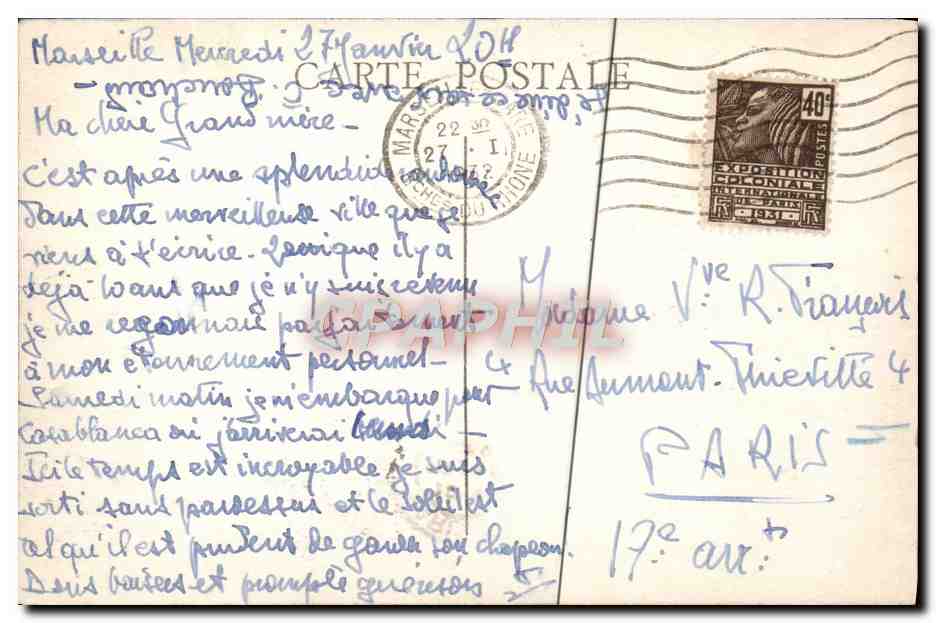 Marseille Mercredi 27 Janvier 20H
CARTE POSTALE
Ma chère Grand'mère –
C'est après une splendide
dans cette merveilleuse ville que je
viens à t'écrire. Quoique il y a
déjà 10 ans que je n'y suis revenu
je me reconnais parfaitement
à mon étonnement personnel –
Samedi matin je m'embarque pour
Casablanca où j'arriverai –
Ici le temps est incroyable je suis
sorti sans pardessus et le soleil est
tel qu'il est prudent de garder son chapeau.
Bons baisers et prompte guérison
MARSEILLE
22 30
27 . I
32
BCHES DU RHONE
40c
POSTES
EXPOSITION
COLONIALE
INTERNATIONALE
DE PARIS
RF 1931 RF
Madame Vve R. François
4 Rue Aumont-Thiéville 4
PARIS
17e arrt
CPAPHIL